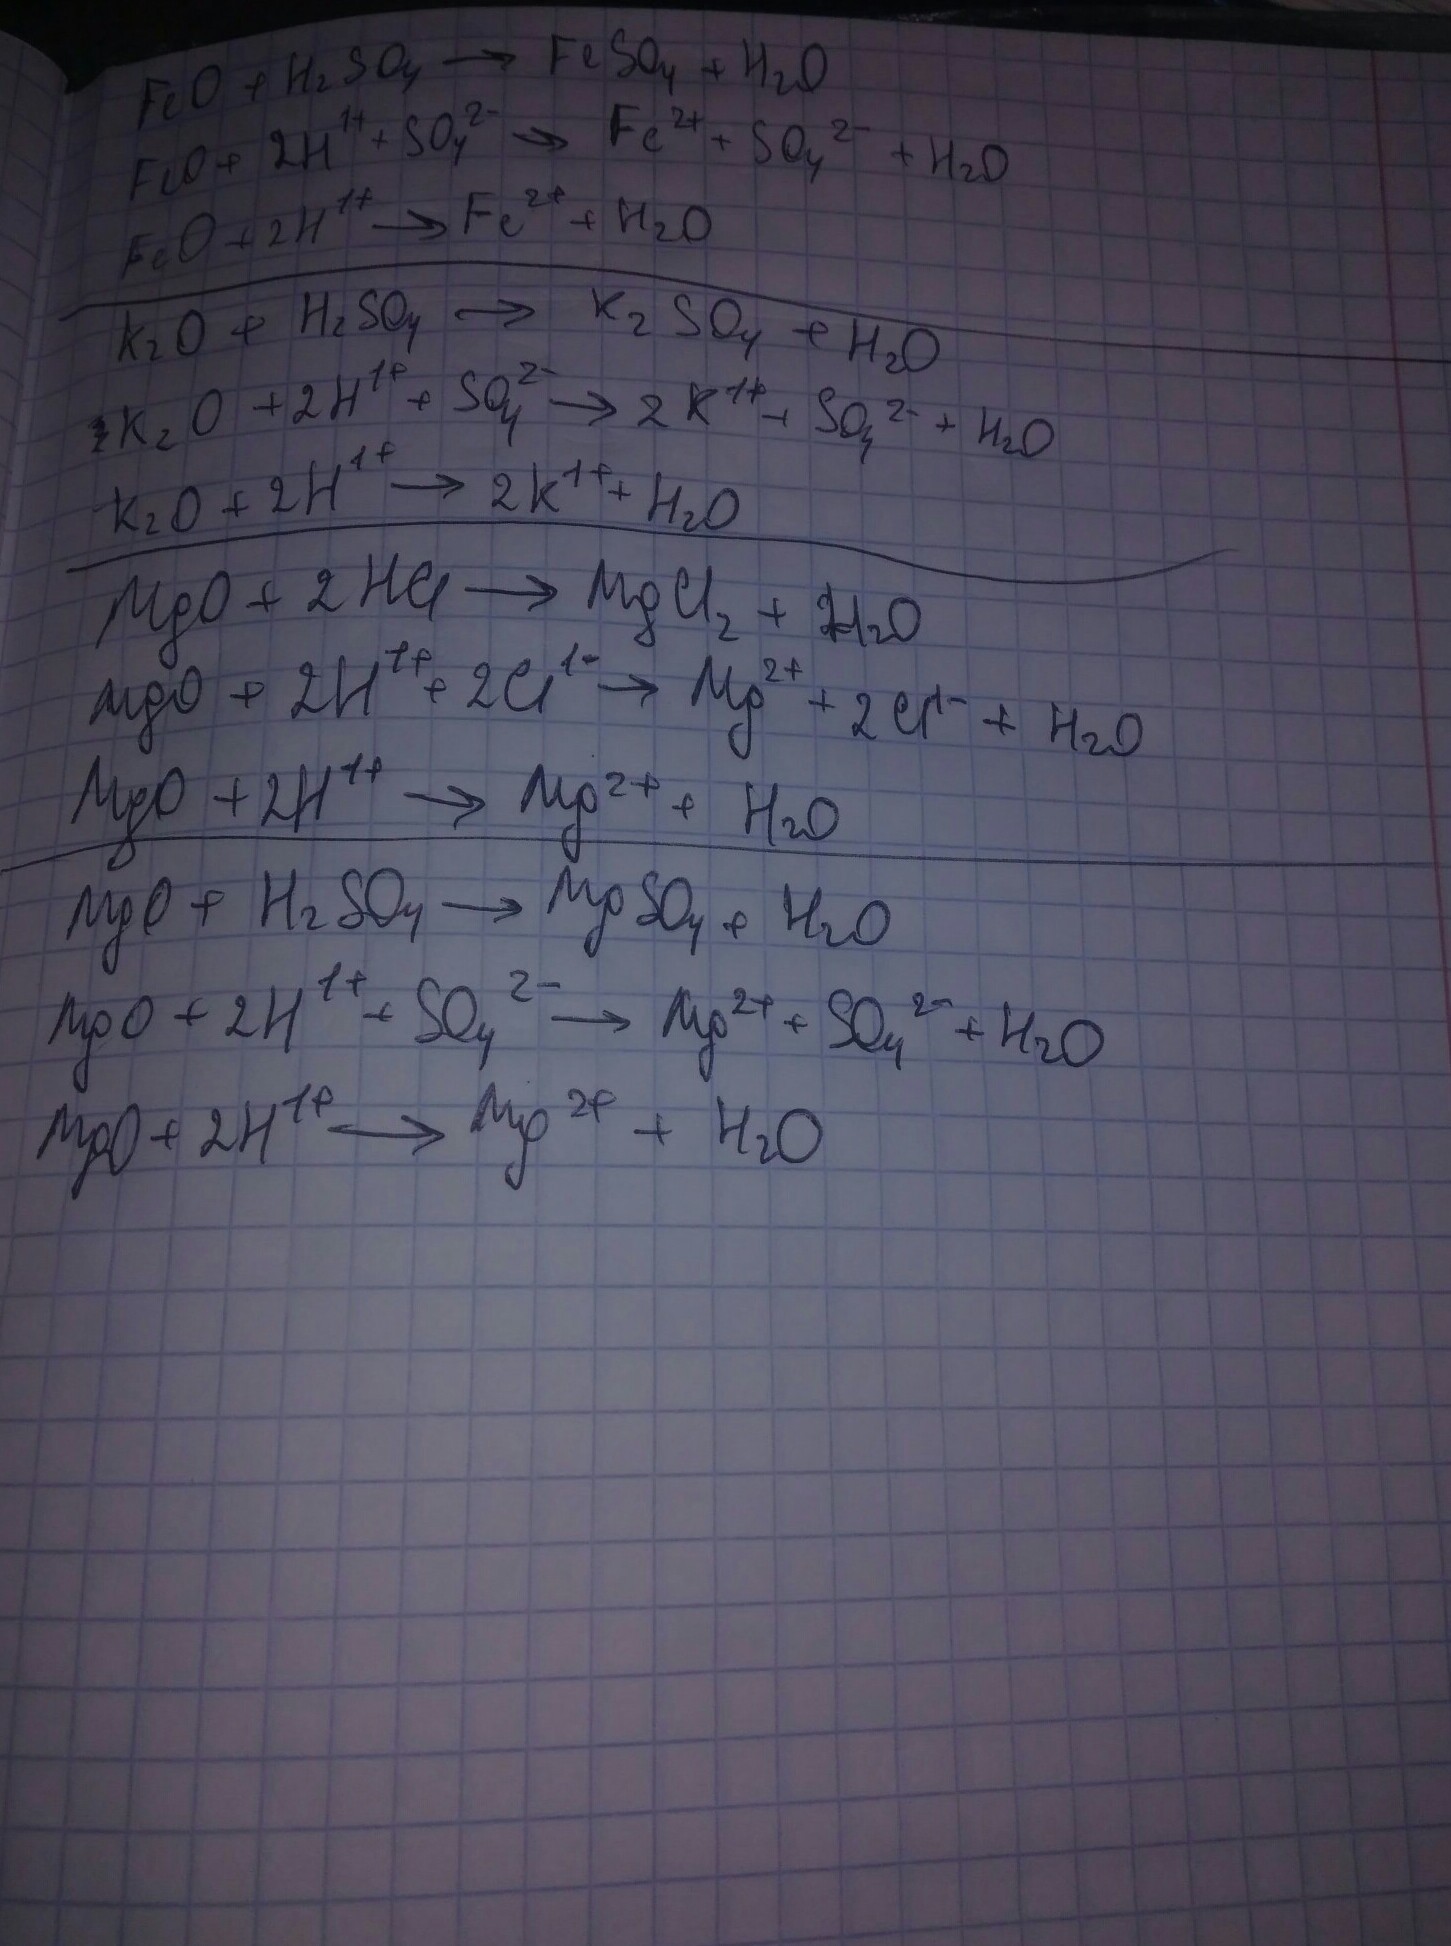 FeO + H₂SO₄ → FeSO₄ + H₂O
FeO + 2H¹⁺ + SO₄²⁻ → Fe²⁺ + SO₄²⁻ + H₂O
FeO + 2H¹⁺ → Fe²⁺ + H₂O
K₂O + H₂SO₄ → K₂SO₄ + H₂O
K₂O + 2H¹⁺ + SO₄²⁻ → 2K¹⁺ + SO₄²⁻ + H₂O
K₂O + 2H¹⁺ → 2K¹⁺ + H₂O
MgO + 2HCl → MgCl₂ + H₂O
MgO + 2H¹⁺ + 2Cl¹⁻ → Mg²⁺ + 2Cl¹⁻ + H₂O
MgO + 2H¹⁺ → Mg²⁺ + H₂O
MgO + H₂SO₄ → MgSO₄ + H₂O
MgO + 2H¹⁺ + SO₄²⁻ → Mg²⁺ + SO₄²⁻ + H₂O
MgO + 2H¹⁺ → Mg²⁺ + H₂O